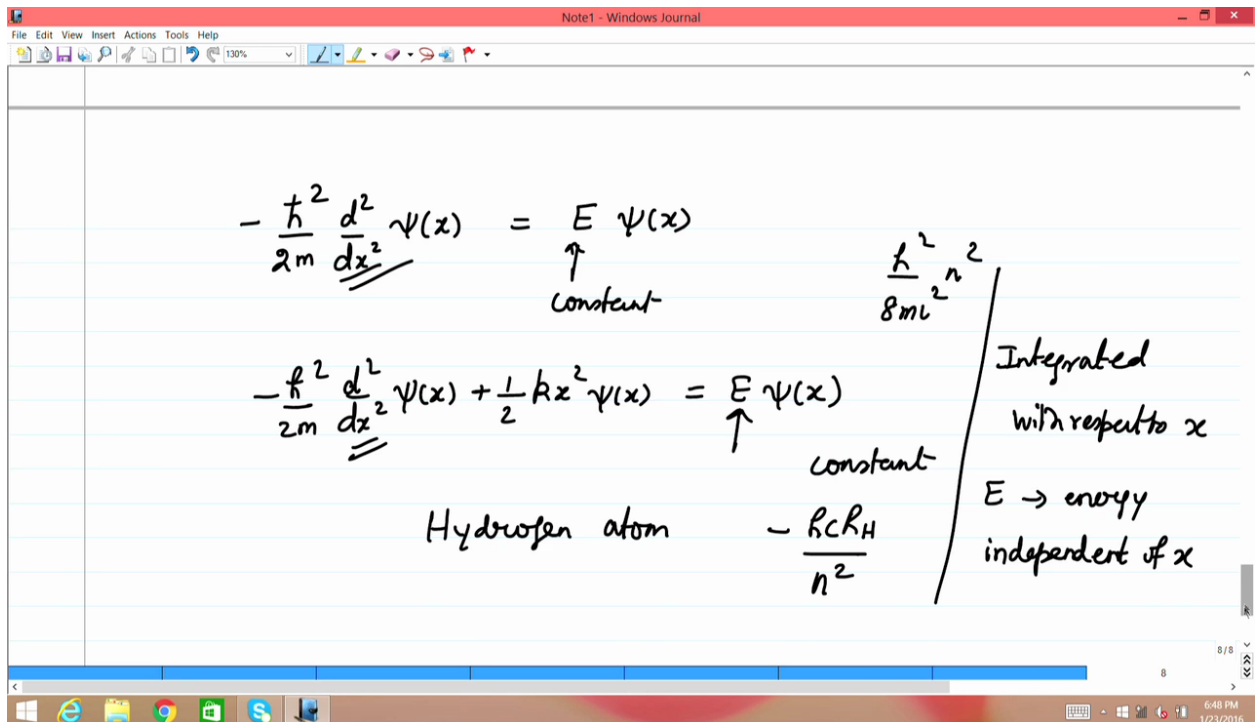 Note1 - Windows Journal
File Edit View Insert Actions Tools Help
130%
- ħ²/2m d²/dx² ψ(x) = E ψ(x)
constant
h²/8mL² n²
- ħ²/2m d²/dx² ψ(x) + 1/2 kx² ψ(x) = E ψ(x)
constant
Integrated
with respect to x
E → energy
independent of x
Hydrogen atom - hcRH/n²
8/8
8
6:48 PM
1/23/2016